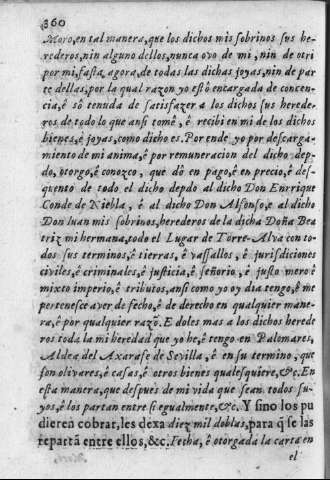 360
Moro, en tal manera, que los dichos mis sobrinos sus he-
rederos, nin alguno dellos, nunca ovo de mi, nin de otri
por mi, fasta, agora, de todas las dichas joyas, nin de par
te dellas, por la qual razon yo estó encargada de concen-
cia, é só tenuda de satisfazer a los dichos sus herede-
ros de todo lo que ansi tomé, é recibi en mi de los dichos
bienes, é joyas, como dicho es. Por ende yo por descarga-
miento de mi anima, é por remuneracion del dicho dep-
do, otorgo, é conozco, que dé en pago, é en precio, é des-
quento de todo el dicho depdo al dicho Don Enrrique
Conde de Niebla, é al dicho Don Alfonso, e al dicho
Don Iuan mis sobrinos, herederos de la dicha Doña Bea
triz mi hermana, todo el Lugar de Torre-Alva con to-
dos sus terminos, é tierras, é vassallos, é jurisdiciones
civiles, é criminales, é justicia, é señorio, é justo mero é
mixto imperio, é tributos, ansi como yo oy dia tengo, é me
pertenesce aver de fecho, é de derecho en qualquier mane-
ra, é por qualquier razō. E doles mas a los dichos herede
ros toda la mi heredad que yo he, é tengo en Palomares,
Aldea del Axarafe de Sevilla, é en su termino, que
son olivares, é casas, é otros bienes qualesquiere, &c. En
esta manera, que despues de mi vida que sean todos su-
yos, é los partan entre si egualmente, &c. Y sino los pu
dieren cobrar, les dexa diez mil doblas, para q̃ se las
repartā entre ellos, &c. Fecha, é otorgada la carta en
el